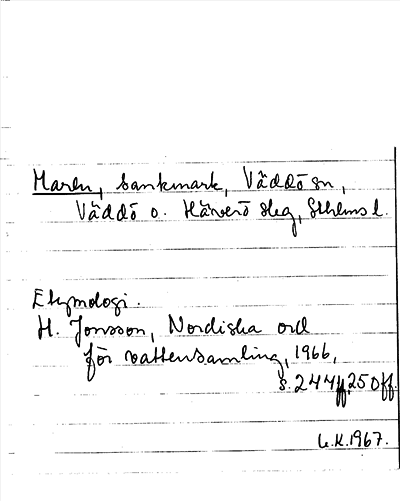 Maren, sankmark, Väddö sn,
Väddö o. Häverö skg, Sthlms l.
Etymologi.
H. Jonsson, Nordiska ord
för vattensamling, 1966,
s. 244ff, 250ff.
1967.